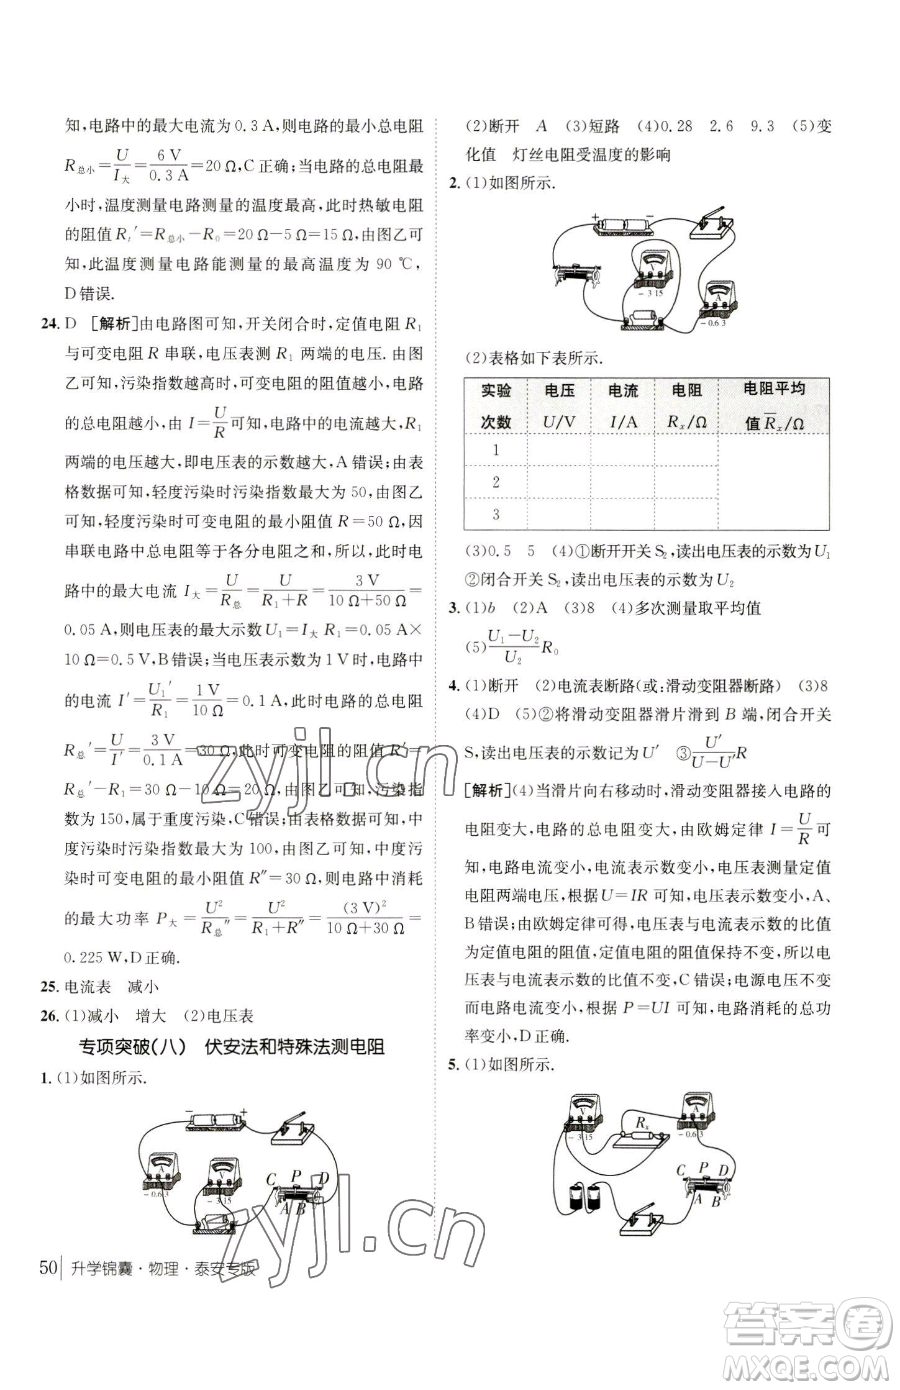 知,电路中的最大电流为 0.3 A,则电路的最小总电阻
R总小=U/I大=6 V/0.3 A=20 Ω,C 正确;当电路的总电阻最
小时,温度测量电路测量的温度最高,此时热敏电阻
的阻值 Rt′=R总小−R0=20 Ω−5 Ω=15 Ω,由图乙可
知,此温度测量电路能测量的最高温度为 90 ℃,
D 错误.
24. D [解析]由电路图可知,开关闭合时,定值电阻 R1
与可变电阻 R 串联,电压表测 R1 两端的电压. 由图
乙可知,污染指数越高时,可变电阻的阻值越小,电路
的总电阻越小,由 I=U/R可知,电路中的电流越大,R1
两端的电压越大,即电压表的示数越大,A 错误;由表
格数据可知,轻度污染时污染指数最大为 50,由图乙
可知,轻度污染时可变电阻的最小阻值 R=50 Ω,因
串联电路中总电阻等于各分电阻之和,所以,此时电
路中的最大电流 I大=U/R总=U/(R1+R)=3 V/(10 Ω+50 Ω)=
0.05 A,则电压表的最大示数 U1=I大 R1=0.05 A×
10 Ω=0.5 V,B 错误;当电压表示数为 1 V 时,电路中
的电流 I′=U1′/R1=1 V/10 Ω=0.1 A,此时电路中的总电阻
R总′=U/I′=3 V/0.1 A=30 Ω,此时可变电阻的阻值 R′=
R总′−R1=30 Ω−10 Ω=20 Ω,由图乙可知,污染指
数为 150,属于重度污染,C 错误;由表格数据可知,中
度污染时污染指数最大为 100,由图乙可知,中度污
染时可变电阻的最小阻值 R″=30 Ω,此时电路消耗
的最大功率 P大=U²/R总″=U²/(R1+R″)=(3 V)²/(10 Ω+30 Ω)=
0.225 W,D 正确.
25. 电流表 减小
26. (1)减小 增大 (2)电压表
专项突破(八) 伏安法和特殊法测电阻
1. (1)如图所示.
− +
A
−0.6 3
V
−3 15
C P D
A B
50 升学锦囊·物理·泰安专版
(2)断开 A (3)短路 (4)0.28 2.6 9.3 (5)变
化值 灯丝电阻受温度的影响
2. (1)如图所示.
+ −
V
−3 15
A
−0.6 3
(2)表格如下表所示.
实验次数 电压U/V 电流I/A 电阻Rx/Ω 电阻平均值R̄x/Ω
1
2
3
(3)0.5 5 (4)①断开开关 S2,读出电压表的示数为 U1
②闭合开关 S2,读出电压表的示数为 U2
3. (1)b (2)A (3)8 (4)多次测量取平均值
(5)(U1−U2)/U2 R0
4. (1)断开 (2)电流表断路(或:滑动变阻器断路) (3)8
(4)D (5)②将滑动变阻器滑片滑到 B 端,闭合开关
S,读出电压表的示数记为 U′ ③U′/(U−U′)R
[解析](4)当滑片向右移动时,滑动变阻器接入电路的
电阻变大,电路的总电阻变大,由欧姆定律 I=U/R可
知,电路电流变小,电流表示数变小,电压表测量定值
电阻两端电压,根据 U=IR 可知,电压表示数变小,A、
B错误;由欧姆定律可得,电压表与电流表示数的比值
为定值电阻的阻值,定值电阻的阻值保持不变,所以电
压表与电流表示数的比值不变,C 错误;电源电压不变
而电路电流变小,根据 P=UI 可知,电路消耗的总功
率变小,D正确.
5. (1)如图所示.
V
−3 15
Rx
A
−0.6 3
C P D
A B
zyjl.cn
zyjl.cn
答案圈
MXQE.COM